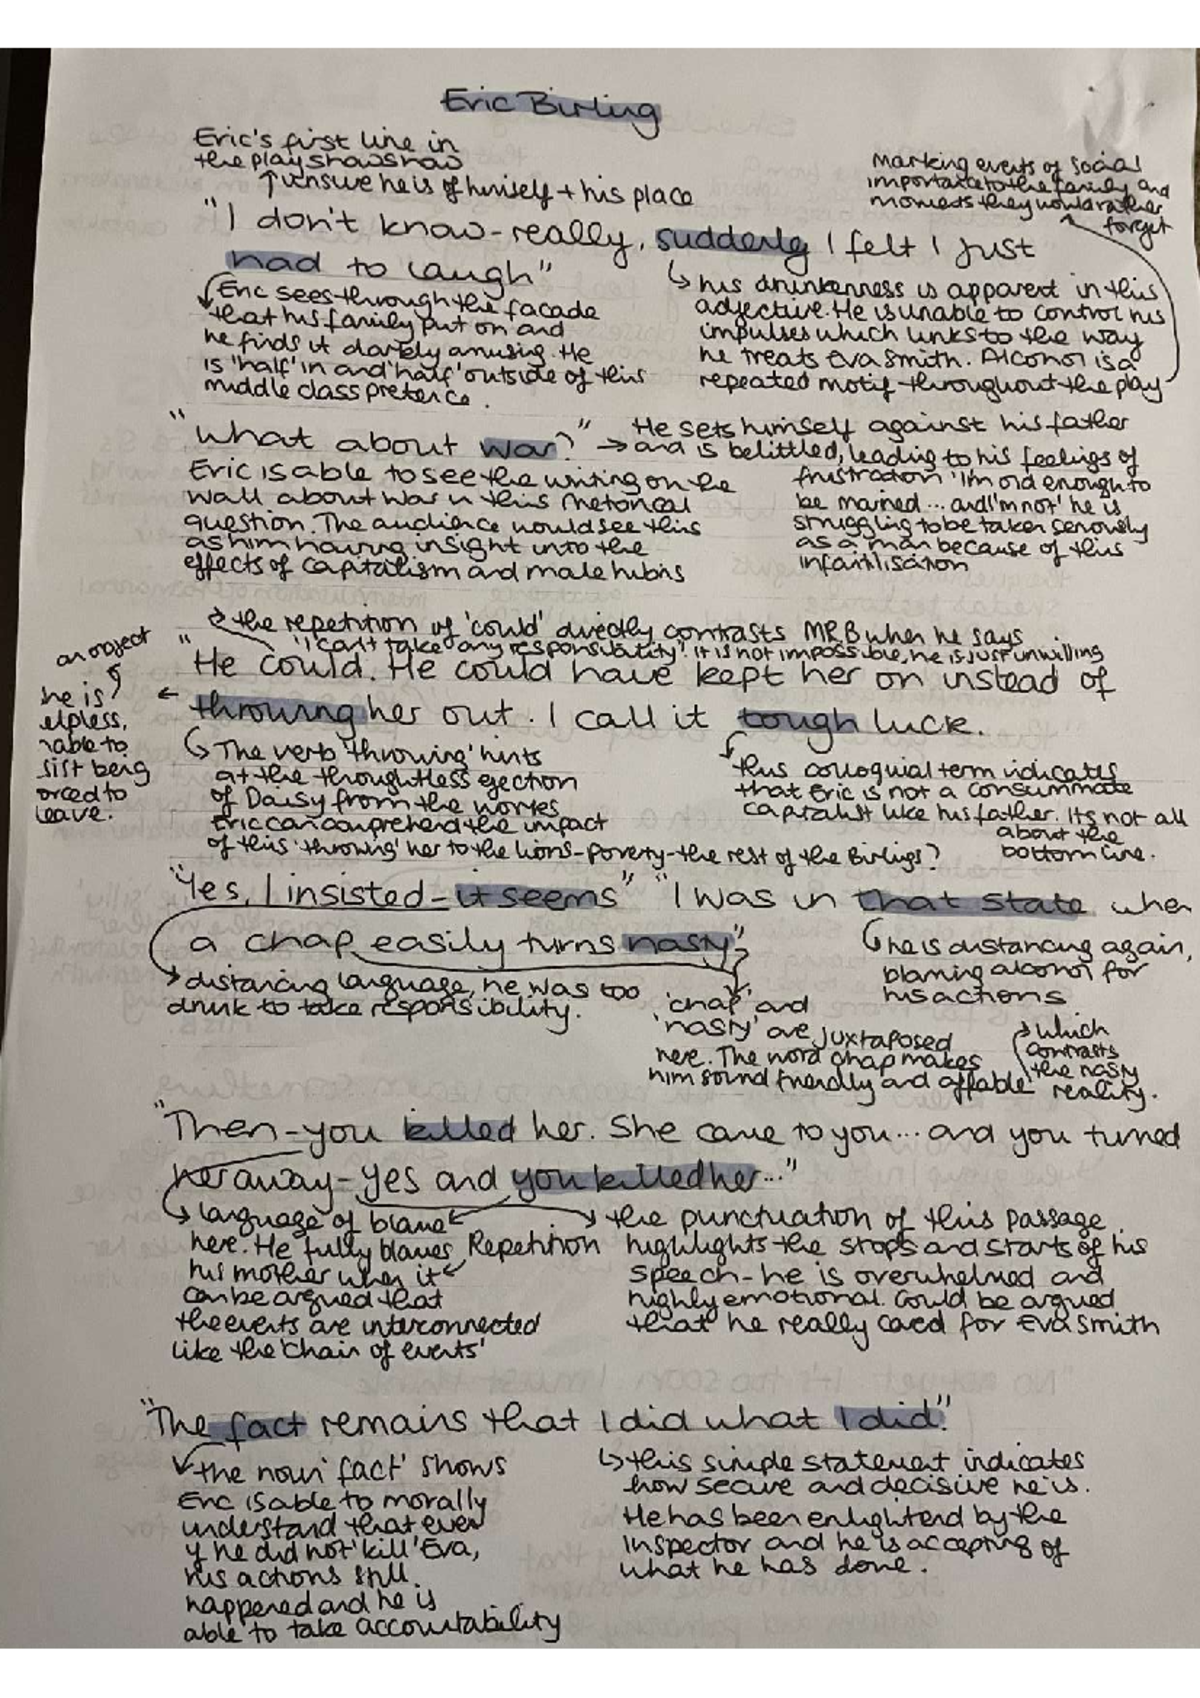 Eric Birling
Eric's first line in
the play shows how
↑ unsure he is of himself + his place
Marking events of social
importance to the family and
moments they would rather
forget
"I don't know-really, suddenly I felt I just
had to laugh"
Eric sees through the facade
that his family put on and
he finds it darkly amusing. He
is 'half' in and 'half' outside of this
middle class pretence.
his drunkenness is apparent in this
adjective. He is unable to control his
impulses which links to the way
he treats Eva Smith. Alcohol is a
repeated motif throughout the play
"What about war?"
→ He sets himself against his father
and is belittled, leading to his feelings of
frustration 'I'm old enough to
be married... and I'm not' he is
struggling to be taken seriously
as a man because of this
infantilisation
Eric is able to see the writing on the
wall about war in this rhetorical
question. The audience would see this
as him having insight into the
effects of capitalism and male hubris
the repetition of 'could' directly contrasts MR B when he says
'I can't take any responsibility'. It is not impossible, he is just unwilling
"He could. He could have kept her on instead of
throwing her out. I call it tough luck.
an object
he is
elpless,
nable to
sist being
orced to
leave.
The verb 'throwing' hints
at the thoughtless ejection
of Daisy from the works
Eric can comprehend the impact
of this 'throwing' her to the lions-poverty-the rest of the Birlings?
this colloquial term indicates
that Eric is not a consummate
capitalist like his father. Its not all
about the
bottom line.
"Yes, I insisted - it seems" "I was in that state when
a chap easily turns nasty"
distancing language, he was too
drunk to take responsibility.
he is distancing again,
blaming alcohol for
his actions
'chap' and
'nasty' are juxtaposed
here. The word chap makes
him sound friendly and affable
which
contrasts
the nasty
reality.
"Then-you killed her. She came to you... and you turned
her away-yes and you killed her..."
language of blame
here. He fully blames
his mother when it
can be argued that
the events are interconnected
like the 'chain of events'
Repetition
the punctuation of this passage
highlights the stops and starts of his
speech-he is overwhelmed and
highly emotional. Could be argued
that he really cared for Eva Smith
"The fact remains that I did what I did."
the noun 'fact' shows
Eric is able to morally
understand that even
if he did not 'kill' Eva,
his actions still
happened and he is
able to take accountability
this simple statement indicates
how secure and decisive he is.
He has been enlightend by the
Inspector and he is accepting of
what he has done.